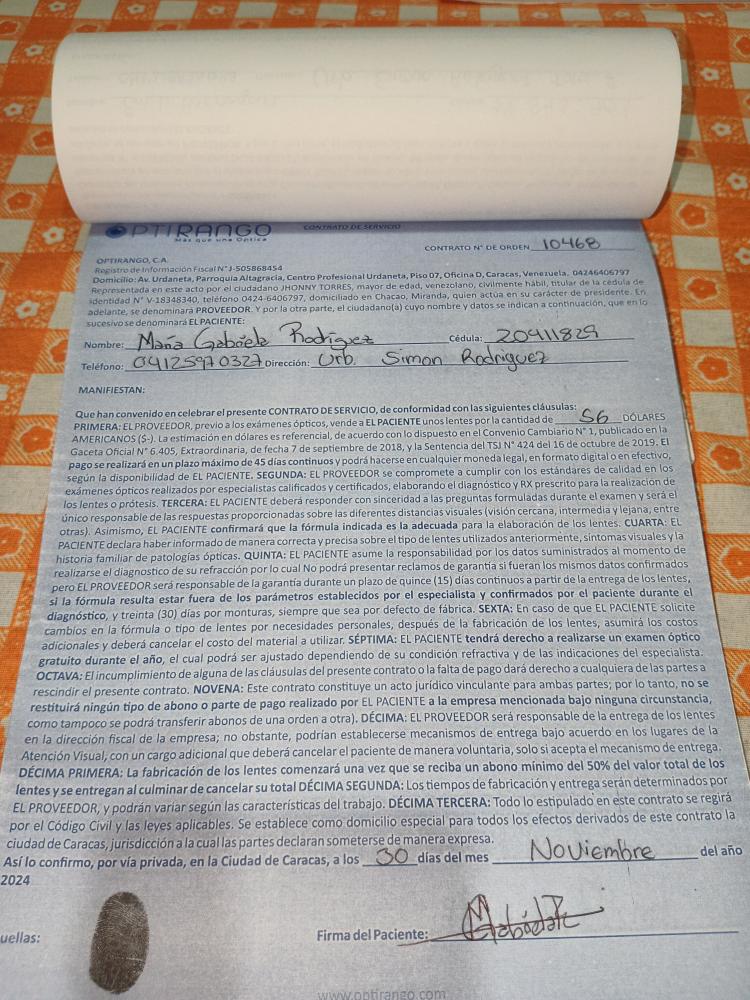 OPTIRANGO
Más que una Óptica
CONTRATO DE SERVICIO
CONTRATO N° DE ORDEN 10468
OPTIRANGO, C.A.
Registro de Información Fiscal N°J-505868454
Domicilio: Av. Urdaneta, Parroquia Altagracia, Centro Profesional Urdaneta, Piso 07, Oficina D, Caracas, Venezuela, 04246406797
Representada en este acto por el ciudadano JHONNY TORRES, mayor de edad, venezolano, civilmente hábil, titular de la cédula de
identidad N° V-18348340, teléfono 0424-6406797, domiciliado en Chacao, Miranda, quien actúa en su carácter de presidente. En
adelante, se denominará PROVEEDOR. Y por la otra parte, el ciudadano(a) cuyo nombre y datos se indican a continuación, que en lo
sucesivo se denominará EL PACIENTE:
Nombre: María Gabriela Rodríguez Cédula: 20411829
Teléfono: 04125970327 Dirección: Urb. Simon Rodriguez
MANIFIESTAN:
Que han convenido en celebrar el presente CONTRATO DE SERVICIO, de conformidad con las siguientes cláusulas:
PRIMERA: EL PROVEEDOR, previo a los exámenes ópticos, vende a EL PACIENTE unos lentes por la cantidad de 56 DÓLARES
AMERICANOS ($-). La estimación en dólares es referencial, de acuerdo con lo dispuesto en el Convenio Cambiario N° 1, publicado en la
Gaceta Oficial N° 6.405, Extraordinaria, de fecha 7 de septiembre de 2018, y la Sentencia del TSJ N° 424 del 16 de octubre de 2019. El
pago se realizará en un plazo máximo de 45 días continuos y podrá hacerse en cualquier moneda legal, en formato digital o en efectivo,
según la disponibilidad de EL PACIENTE. SEGUNDA: EL PROVEEDOR se compromete a cumplir con los estándares de calidad en los
exámenes ópticos realizados por especialistas calificados y certificados, elaborando el diagnóstico y RX prescrito para la realización de
los lentes o prótesis. TERCERA: EL PACIENTE deberá responder con sinceridad a las preguntas formuladas durante el examen y será el
único responsable de las respuestas proporcionadas sobre las diferentes distancias visuales (visión cercana, intermedia y lejana, entre
otras). Asimismo, EL PACIENTE confirmará que la fórmula indicada es la adecuada para la elaboración de los lentes. CUARTA: EL
PACIENTE declara haber informado de manera correcta y precisa sobre el tipo de lentes utilizados anteriormente, síntomas visuales y la
historia familiar de patologías ópticas. QUINTA: EL PACIENTE asume la responsabilidad por los datos suministrados al momento de
realizarse el diagnostico de su refracción por lo cual No podrá presentar reclamos de garantía si fueran los mismos datos confirmados
pero EL PROVEEDOR será responsable de la garantía durante un plazo de quince (15) días continuos a partir de la entrega de los lentes,
si la fórmula resulta estar fuera de los parámetros establecidos por el especialista y confirmados por el paciente durante el
diagnóstico, y treinta (30) días por monturas, siempre que sea por defecto de fábrica. SEXTA: En caso de que EL PACIENTE solicite
cambios en la fórmula o tipo de lentes por necesidades personales, después de la fabricación de los lentes, asumirá los costos
adicionales y deberá cancelar el costo del material a utilizar. SÉPTIMA: EL PACIENTE tendrá derecho a realizarse un examen óptico
gratuito durante el año, el cual podrá ser ajustado dependiendo de su condición refractiva y de las indicaciones del especialista.
OCTAVA: El incumplimiento de alguna de las cláusulas del presente contrato o la falta de pago dará derecho a cualquiera de las partes a
rescindir el presente contrato. NOVENA: Este contrato constituye un acto jurídico vinculante para ambas partes; por lo tanto, no se
restituirá ningún tipo de abono o parte de pago realizado por EL PACIENTE a la empresa mencionada bajo ninguna circunstancia,
como tampoco se podrá transferir abonos de una orden a otra). DÉCIMA: EL PROVEEDOR será responsable de la entrega de los lentes
en la dirección fiscal de la empresa; no obstante, podrían establecerse mecanismos de entrega bajo acuerdo en los lugares de la
Atención Visual, con un cargo adicional que deberá cancelar el paciente de manera voluntaria, solo si acepta el mecanismo de entrega.
DÉCIMA PRIMERA: La fabricación de los lentes comenzará una vez que se reciba un abono mínimo del 50% del valor total de los
lentes y se entregan al culminar de cancelar su total DÉCIMA SEGUNDA: Los tiempos de fabricación y entrega serán determinados por
EL PROVEEDOR, y podrán variar según las características del trabajo. DÉCIMA TERCERA: Todo lo estipulado en este contrato se regirá
por el Código Civil y las leyes aplicables. Se establece como domicilio especial para todos los efectos derivados de este contrato la
ciudad de Caracas, jurisdicción a la cual las partes declaran someterse de manera expresa.
Así lo confirmo, por vía privada, en la Ciudad de Caracas, a los 30 días del mes Noviembre del año
2024
uellas:
Firma del Paciente:
www.optirango.com